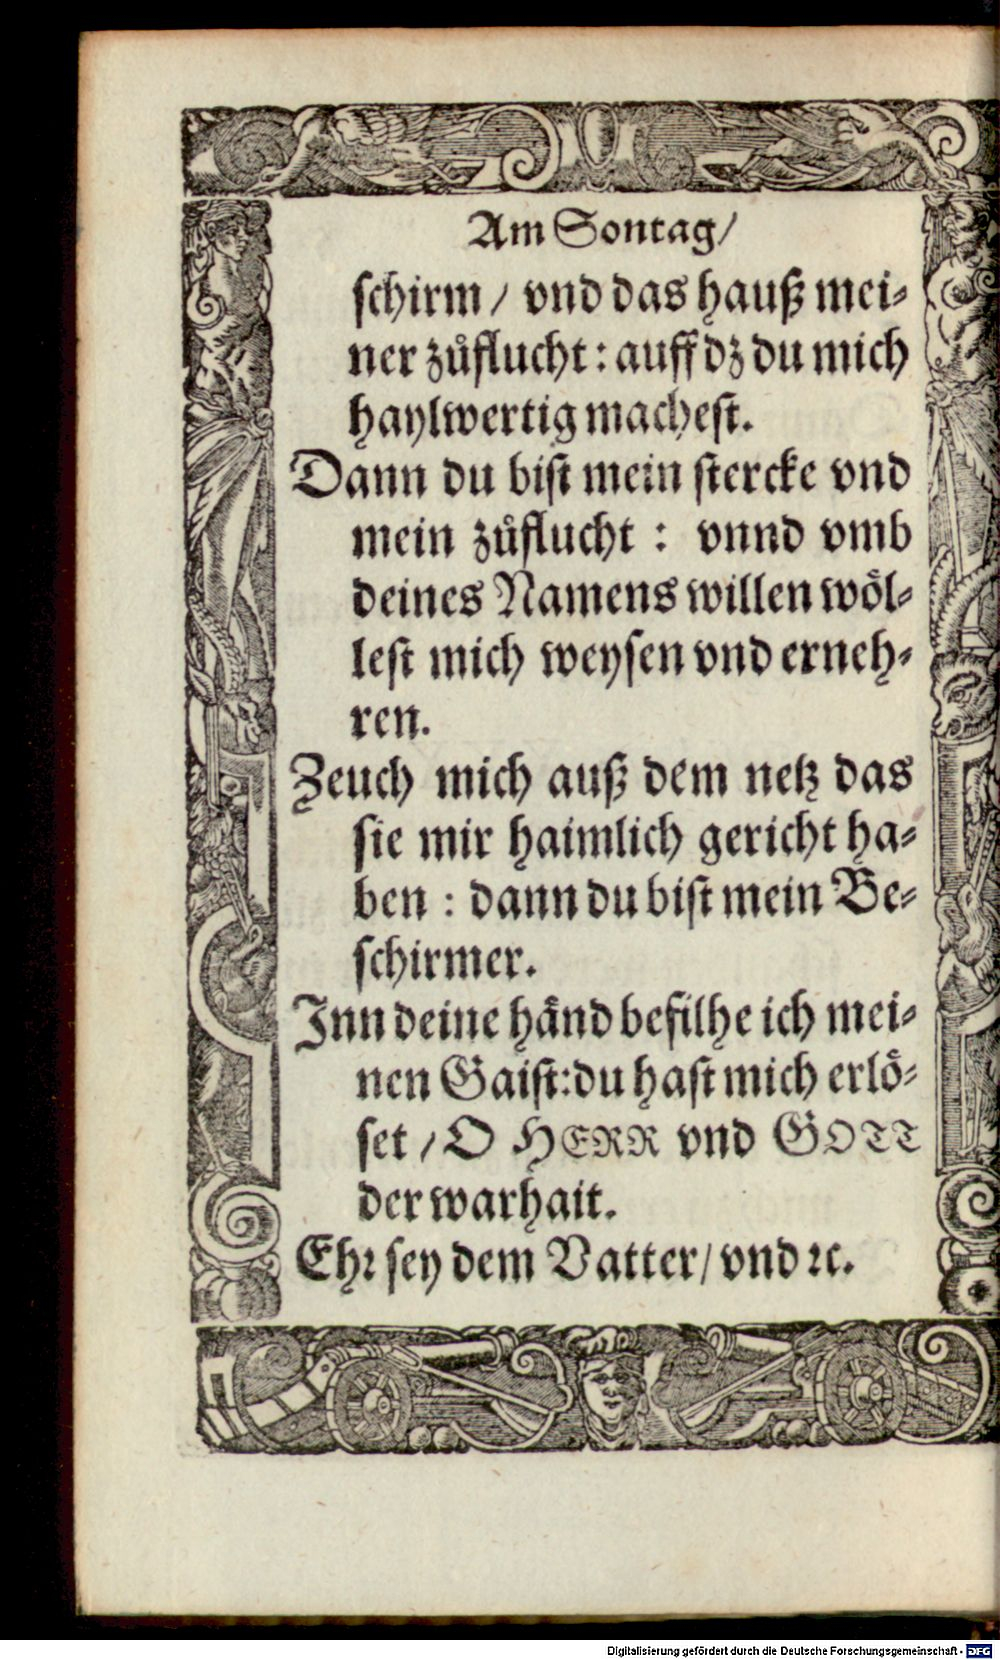 Am Sontag/
schirm / vnd das hauß mei⸗
ner zůflucht : auff dz du mich
haylwertig machest.
Dann du bist mein stercke vnd
mein zůflucht : vnnd vmb
deines Namens willen wöl⸗
lest mich weysen vnd erneh⸗
ren.
Zeuch mich auß dem netz das
sie mir haimlich gericht ha⸗
ben : dann du bist mein Be⸗
schirmer.
Inn deine händ befilhe ich mei⸗
nen Gaist: du hast mich erlö⸗
set / O HERR vnd GOTT
der warhait.
Ehr sey dem Vatter/ vnd ꝛc.
Digitalisierung gefördert durch die Deutsche Forschungsgemeinschaft - DFG